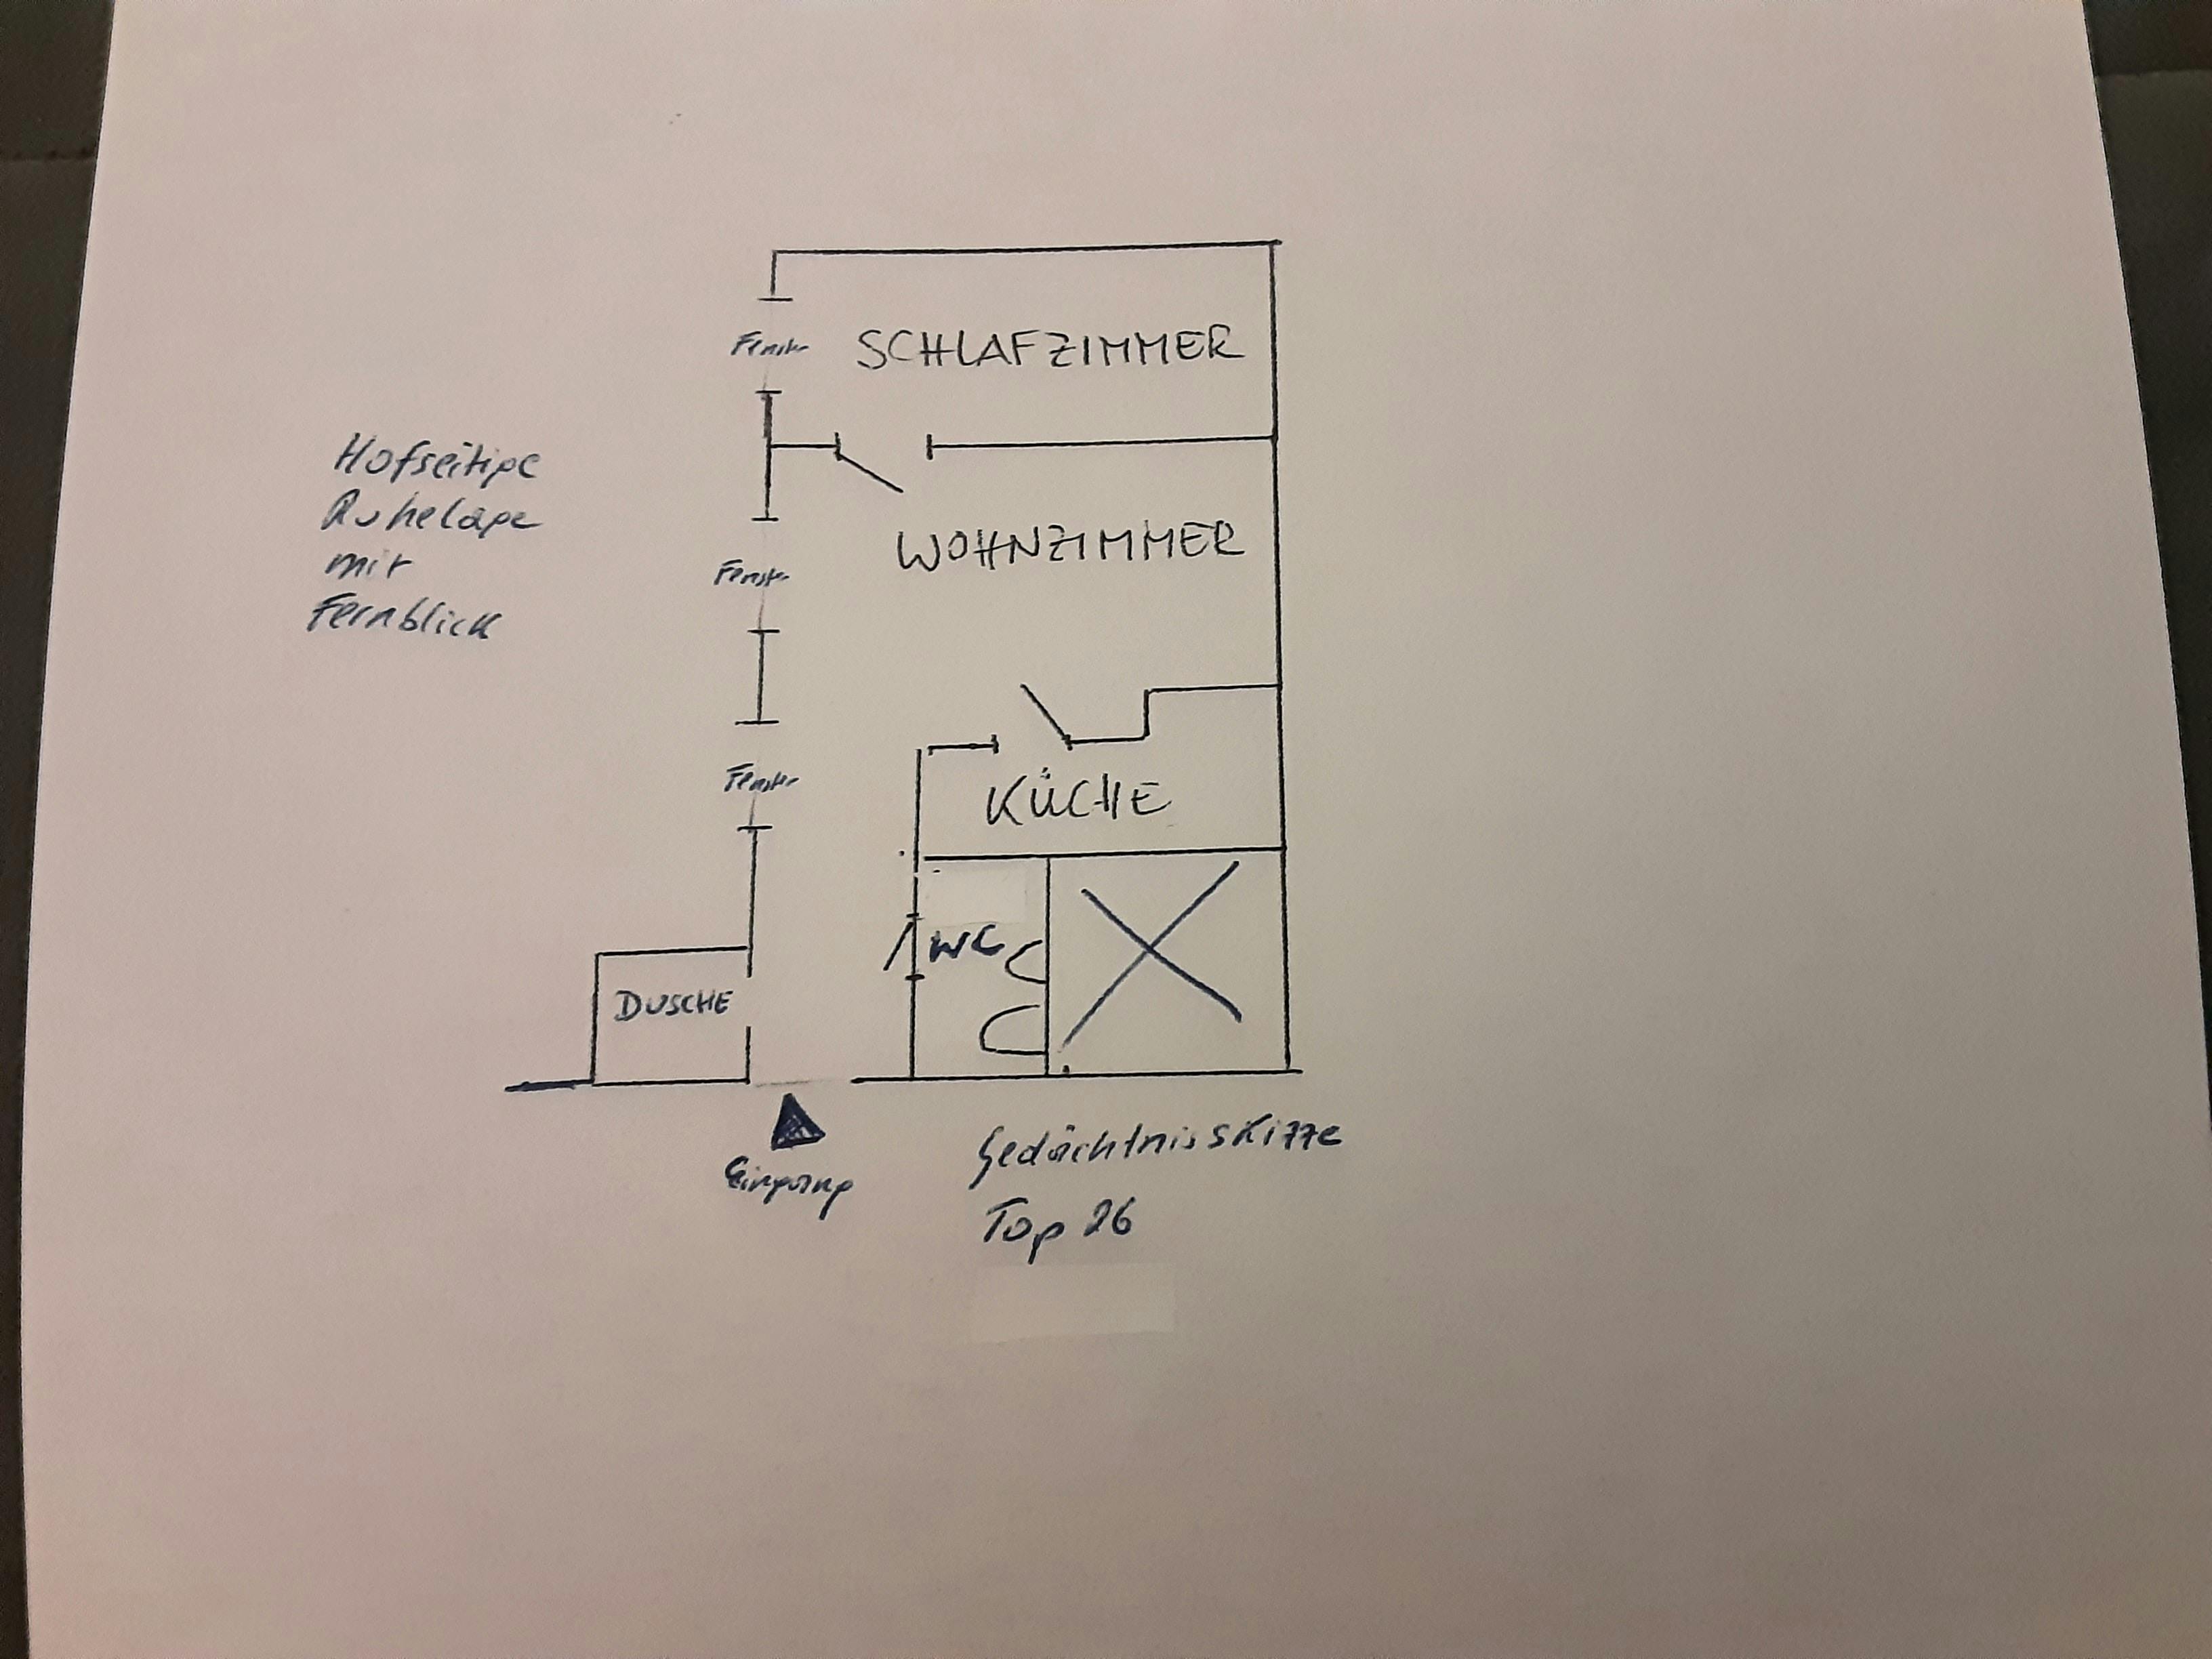 Fenster
SCHLAFZIMMER
Hofseitige
Ruhelage
mit
Fernblick
WOHNZIMMER
Fenster
Fenster
KÜCHE
WC
DUSCHE
Eingang
Gedächtnisskizze
Top 26